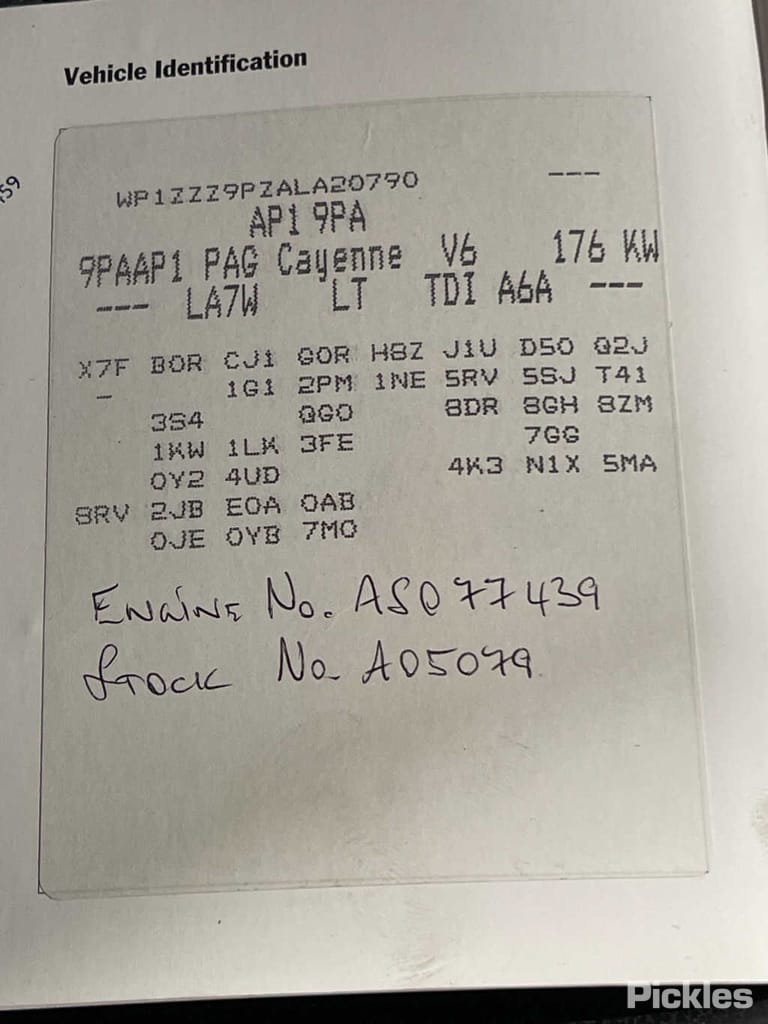 Vehicle Identification
59
WP1ZZZ9PZALA20790 ---
AP1 9PA
9PAAP1 PAG Cayenne V6 176 KW
--- LA7W LT TDI A6A ---
X7F B0R CJ1 G0R H8Z J1U D50 Q2J
- 1G1 2PM 1NE 5RV 5SJ T41
3S4 QG0 8DR 8GH 8ZM
1KW 1LK 3FE 7GG
0Y2 4UD 4K3 N1X 5MA
8RV 2JB E0A 0AB
0JE 0YB 7M0
ENGINE No. ASQ77439
STOCK No. A05079
Pickles